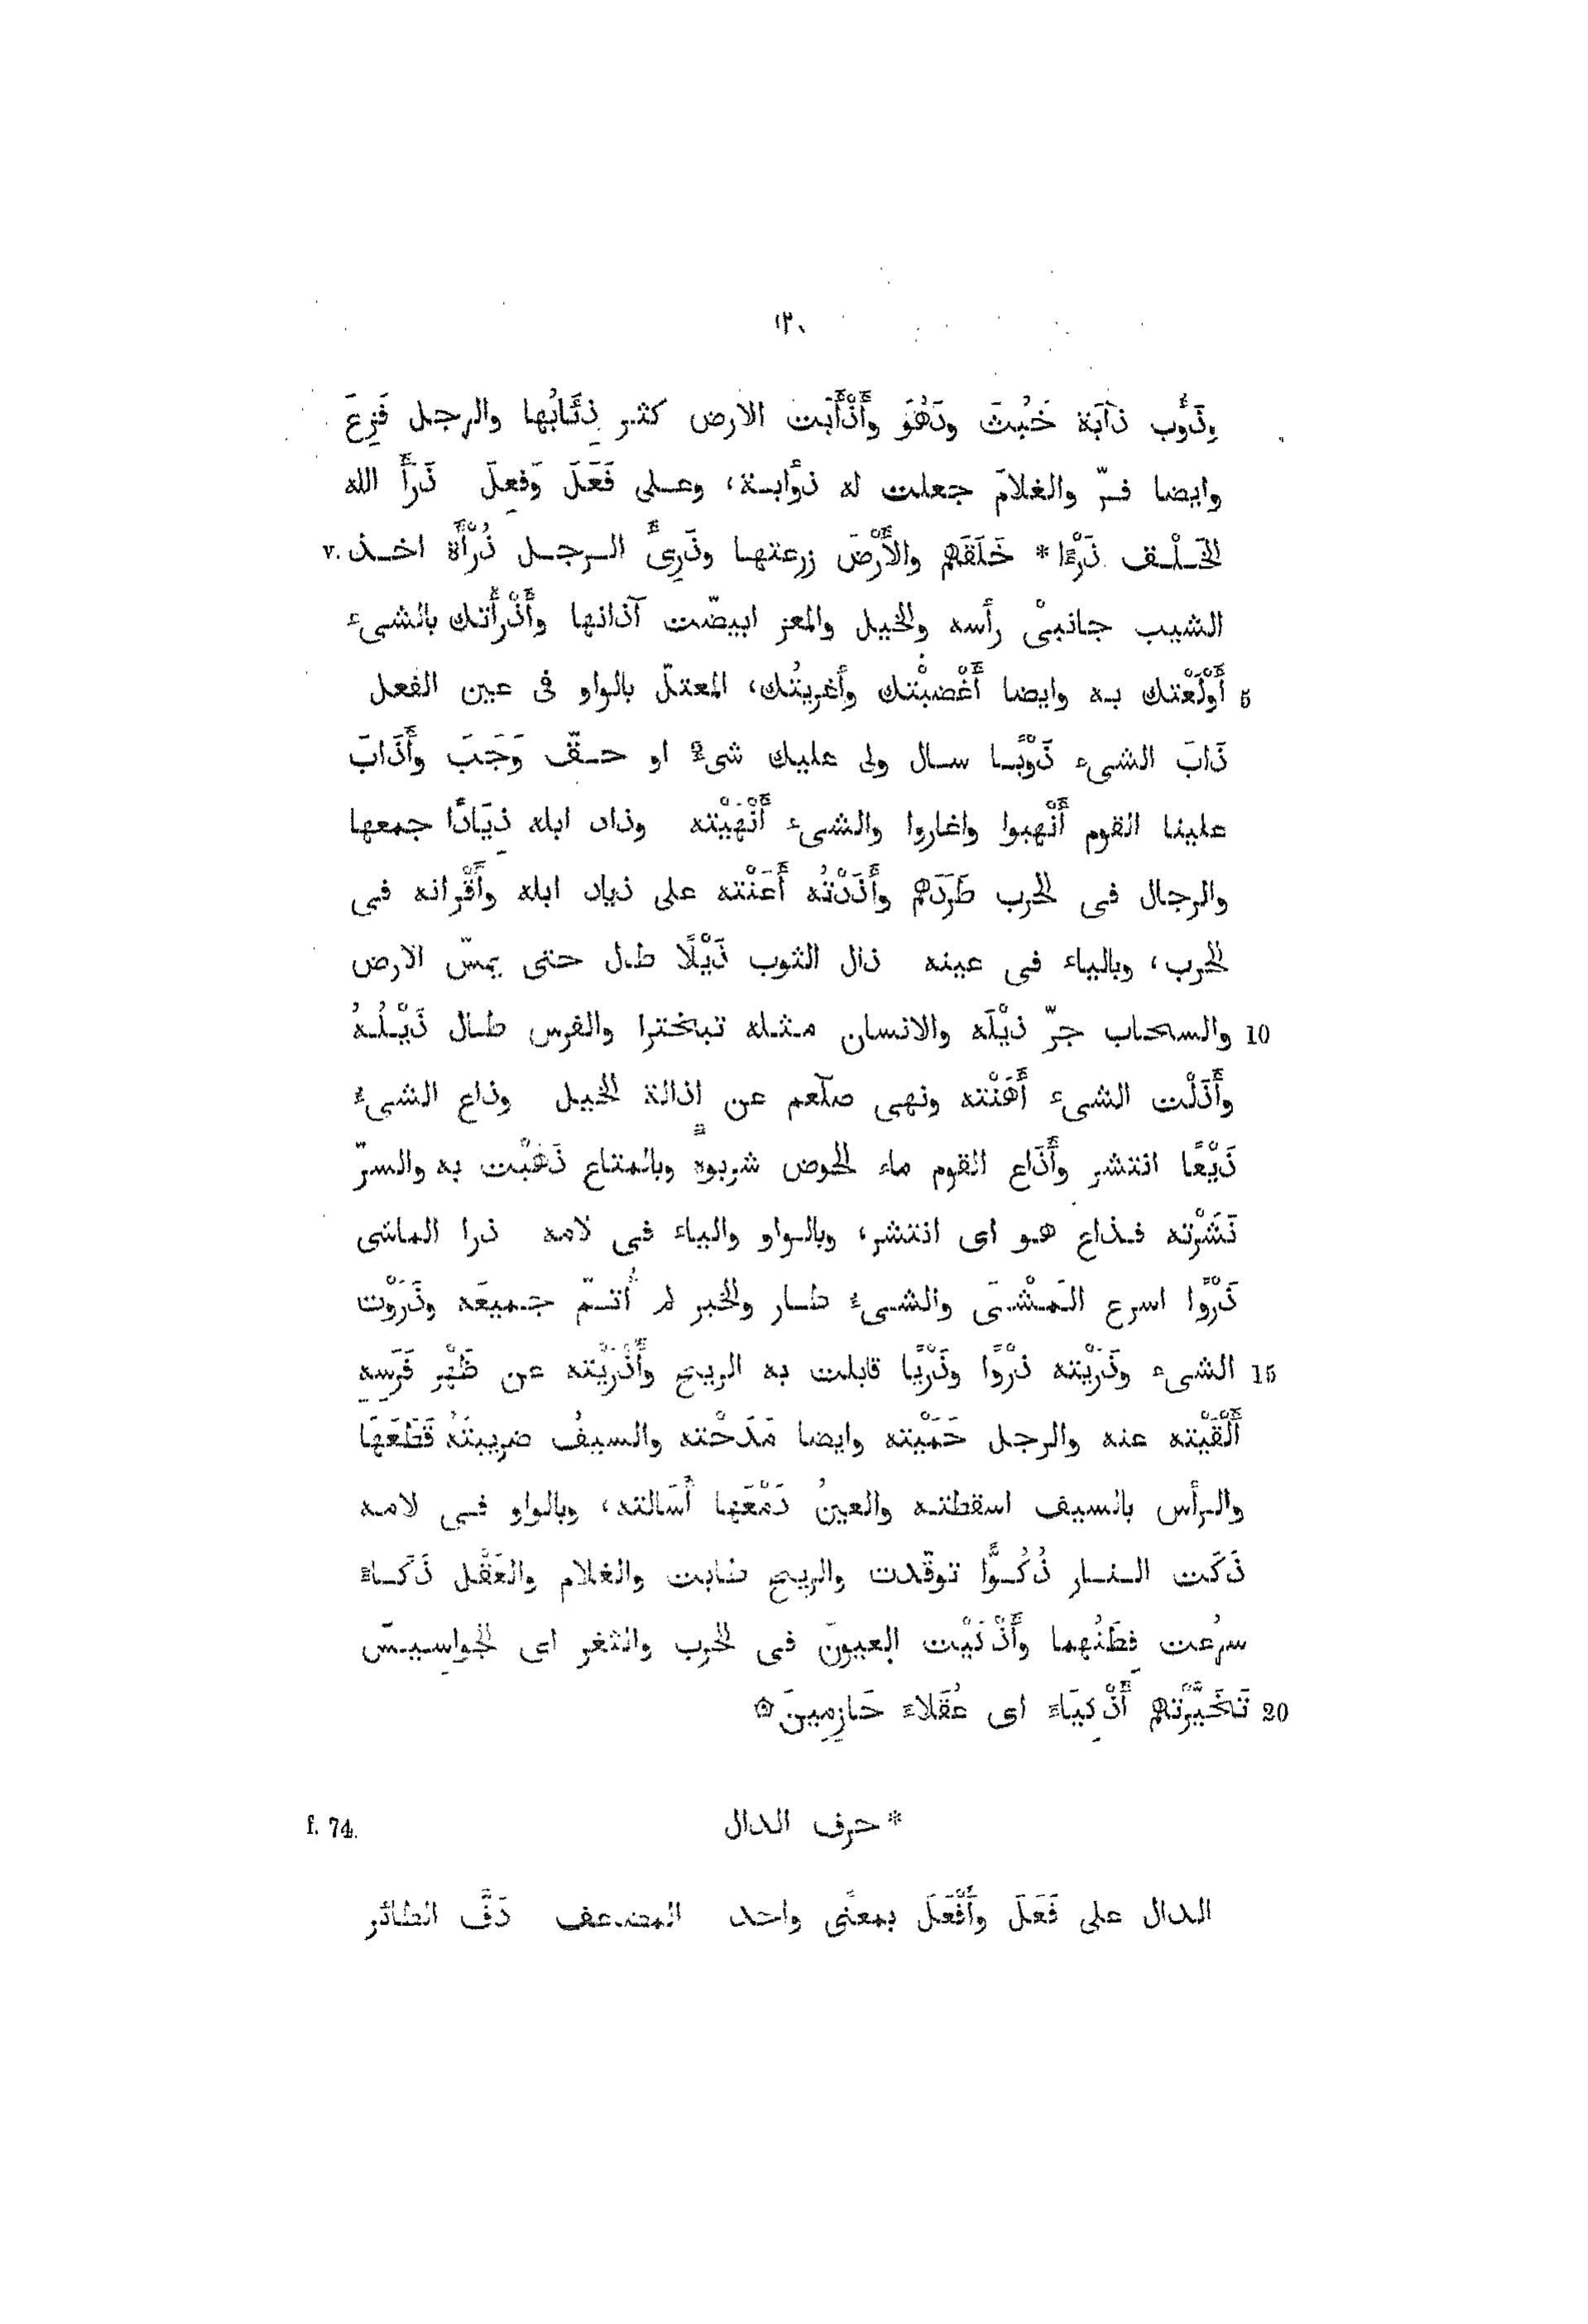 ١٢٠
وذَؤُب ذآبَة خَبُثَ ودَهُوَ وأَذْأَبَت الارض كثر ذِئَابُها والرجل فَزِعَ
وايضا فرّ والغلامَ جعلت له ذؤابة، وعلى فَعَلَ وَفعِلَ ذَرَأَ الله
الخَلْق ذَرْءًا* خَلَقَهم والأَرْضَ زرعتها وذَرِئَ الرجل ذُرْأَةً اخذ v.
الشيب جانبىْ رأسه والخيل والمعز ابيضّت آذانها وأَذْرأَتك بالشىء
5 أَوْلَعْتك به وايضا أَغْضبْتك وأغريتُك، المعتلّ بالواو فى عين الفعل
ذَابَ الشىء ذَوْبًا سال ولى عليك شىءٌ او حقّ وَجَبَ وأَذَابَ
علينا القوم أَنْهبوا واغاروا والشىء أَنْهَيْته وذاد ابله ذِيَادًا جمعها
والرجال فى الحرب طَرَدَهم وأَذَدْتُه أَعَنْته على ذياد ابله وأَقْرانه فى
الحرب، وبالياء فى عينه ذال الثوب ذَيْلًا طال حتى يمسّ الارض
10 والسحاب جرّ ذيْلَه والانسان مثله تبخترا والفرس طال ذَيْلُهُ
وأَذَلْت الشىء أَهَنْته ونهى صلّعم عن اذالة الخيل وذاع الشىءُ
ذَيْعًا انتشر وأَذَاع القوم ماء الحوض شربوه وبالمتاع ذَهَبْت به والسرّ
نَشَرْته فذاع هو اى انتشر، وبالواو والياء فى لامه ذرا الماشى
ذَرْوا اسرع المَشْىَ والشىءُ طار والخبر لم أُتمّ جميعَه وذَرَوْت
15 الشىء وذَرَيْته ذرْوًا وذَرْيًا قابلت به الريح وأَذْرَيْته عن ظَهْرِ فَرَسِهِ
أَلْقَيْته عنه والرجل حَمَيْته وايضا مَدَحْته والسيفُ ضريبتَهُ قَطَعَهَا
والرأس بالسيف اسقطته والعينُ دَمْعَها أَسَالته، وبالواو فى لامه
ذَكَت النار ذُكُوًّا توقّدت والريح طابت والغلام والعَقْل ذَكَاءً
سرُعت فِطَنُهما وأَذْكَيْت العيونَ فى الحرب والثغر اى الجواسيسَ
20 تَخَيَّرْتهم أَذْكِيَاءَ اى عُقَلاءَ حَازِمِينَ ۞
*حرف الدال f. 74.
الدال على فَعَلَ وأَفْعَلَ بمعنًى واحد المضعف دَفَّ الطائر